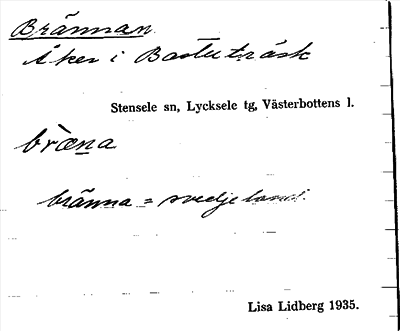 Brännan.
Åker i Bastuträsk
Stensele sn, Lycksele tg, Västerbottens l.
bræ̀n̠a
bränna = svedjeland.
Lisa Lidberg 1935.